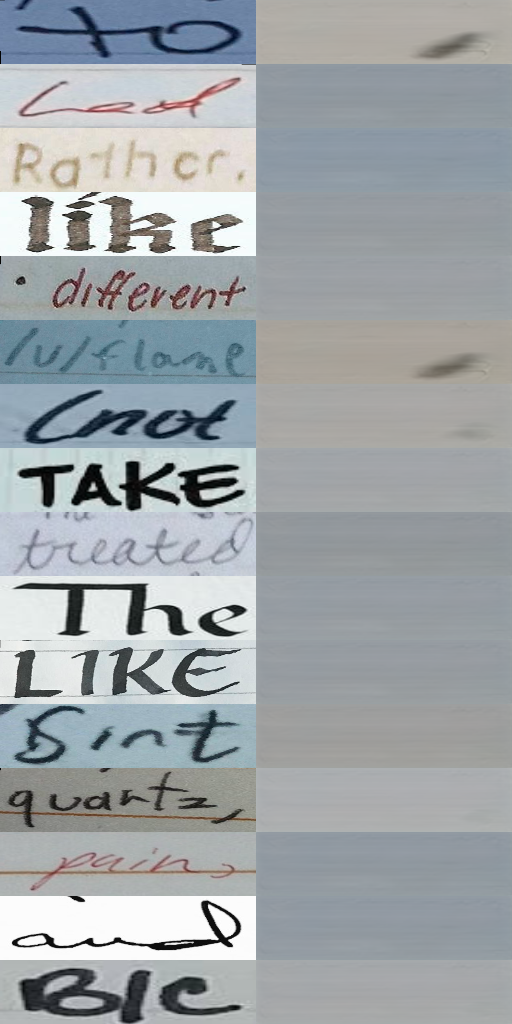 to
Lead
Rather.
like
• different
/v/flame
(not
TAKE
treated
The
LIKE
Sint
quartz,
pain,
and
B/C